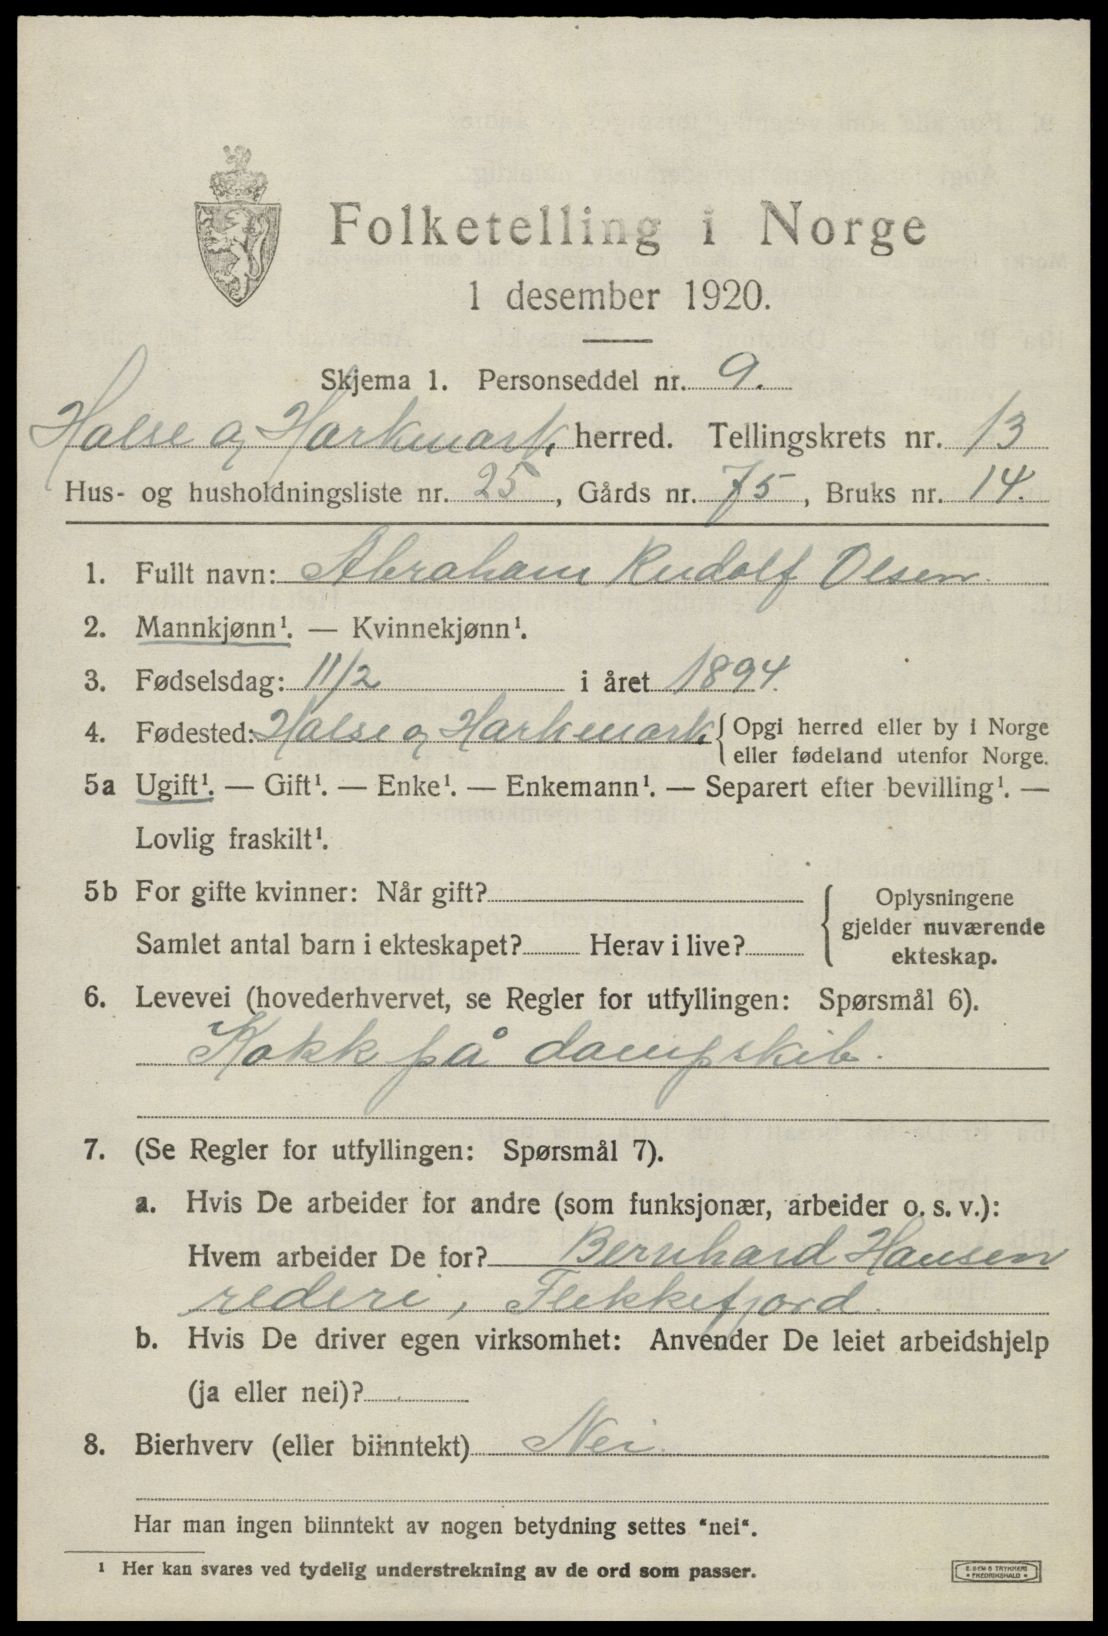 Folketelling i Norge
1 desember 1920.
Skjema 1. Personseddel nr. 9.
Halse og Harkmark herred. Tellingskrets nr. 13
Hus- og husholdningsliste nr. 25, Gårds nr. 75, Bruks nr. 14.
1. Fullt navn: Abraham Rudolf Olsen.
2. Mannkjønn¹. — Kvinnekjønn¹.
3. Fødselsdag: 11/2 i året 1894.
4. Fødested: Halse og Harkmark { Opgi herred eller by i Norge
eller fødeland utenfor Norge.
5a Ugift¹. — Gift¹. — Enke¹. — Enkemann¹. — Separert efter bevilling¹. —
Lovlig fraskilt¹.
5b For gifte kvinner: Når gift?
Samlet antal barn i ekteskapet? Herav i live?
{ Oplysningene
gjelder nuværende
ekteskap.
6. Levevei (hovederhvervet, se Regler for utfyllingen: Spørsmål 6).
Kokk på dampskib.
7. (Se Regler for utfyllingen: Spørsmål 7).
a. Hvis De arbeider for andre (som funksjonær, arbeider o. s. v.):
Hvem arbeider De for? Bernhard Hansen
rederi, Flekkefjord.
b. Hvis De driver egen virksomhet: Anvender De leiet arbeidshjelp
(ja eller nei)?
8. Bierhverv (eller biinntekt) Nei.
Har man ingen biinntekt av nogen betydning settes "nei".
¹ Her kan svares ved tydelig understrekning av de ord som passer.